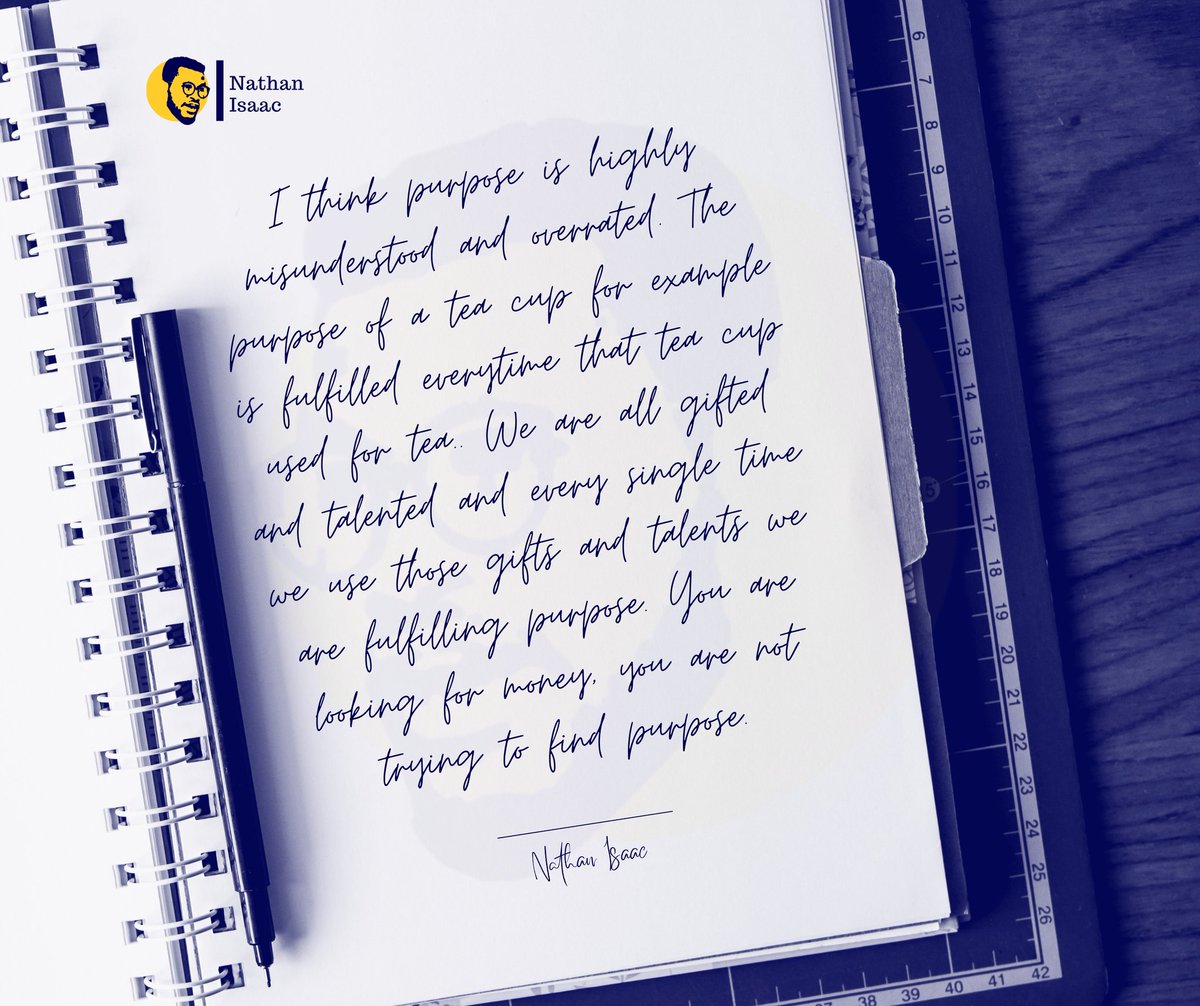 Nathan
Isaac
I think purpose is highly
misunderstood and overrated. The
purpose of a tea cup for example
is fulfilled everytime that tea cup
used for tea.. We are all gifted
and talented and every single time
we use those gifts and talents we
are fulfilling purpose. You are
looking for money, you are not
trying to find purpose.
Nathan Isaac
6
7
8
9
10
11
12
13
14
15
5
16
17
18
19
20
21
22
23
24
25
26
38 39 40 41 42